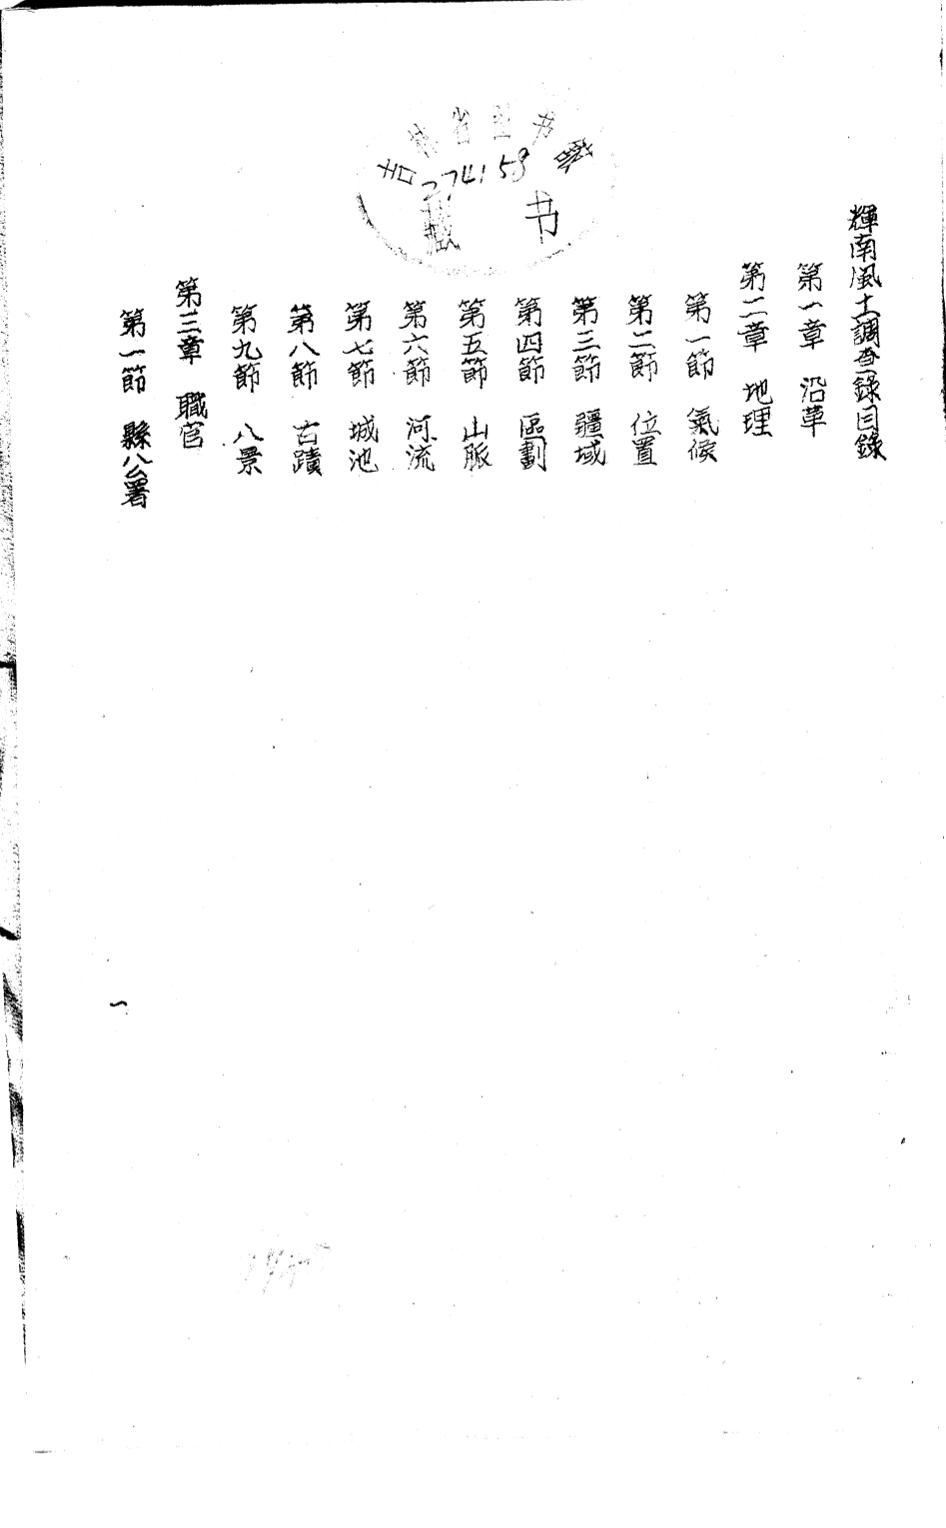 輝南風土調查錄目錄
第一章 沿革
第二章 地理
第一節 氣候
第二節 位置
第三節 疆域
第四節 區劃
第五節 山脈
第六節 河流
第七節 城池
第八節 古蹟
第九節 八景
第三章 職官
第一節 縣公署
一
吉林省图书館
274158
藏书